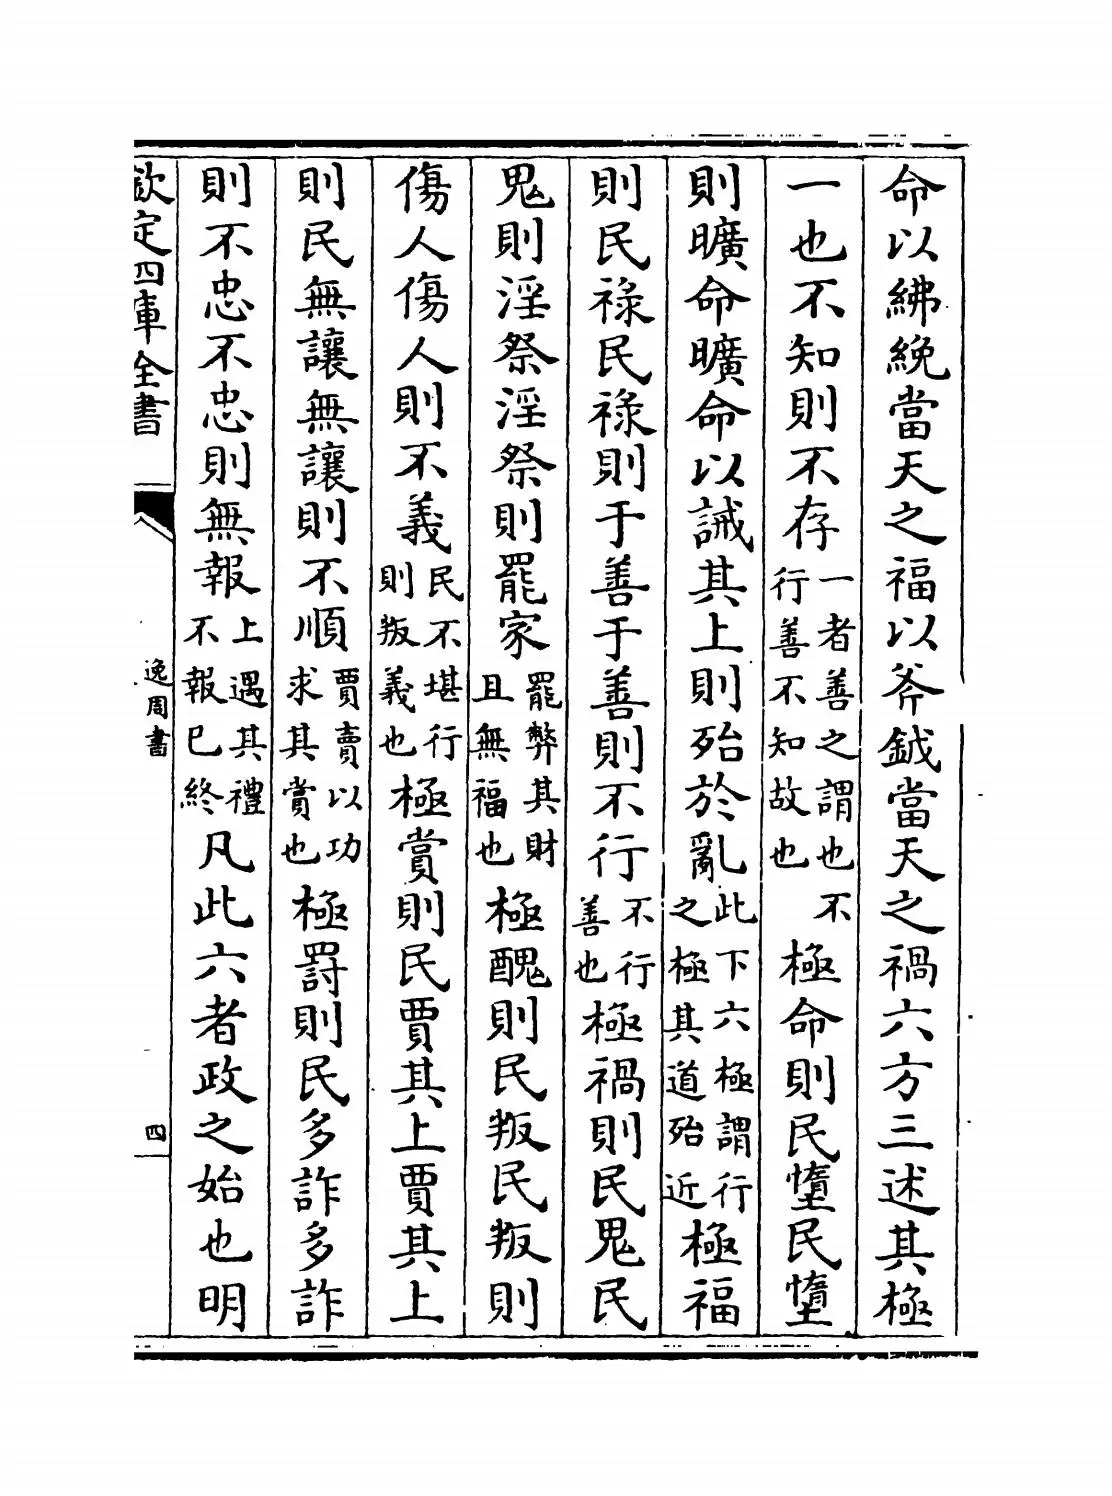 命以紼絻當天之福以斧鉞當天之禍六方三述其極
一也不知則不存一者善之謂也不行善不知故也極命則民墮民墮
則曠命曠命以誡其上則殆於亂此下六極謂行之極其道殆近極福
則民祿民祿則于善于善則不行不行善也極禍則民鬼民
鬼則淫祭淫祭則罷家罷弊其財且無福也極醜則民叛民叛則
傷人傷人則不義民不堪行則叛義也極賞則民賈其上賈其上
則民無讓無讓則不順賈賣以功求其賞也極罰則民多詐多詐
則不忠不忠則無報上遇其禮不報已終凡此六者政之始也明
欽定四庫全書
逸周書
四